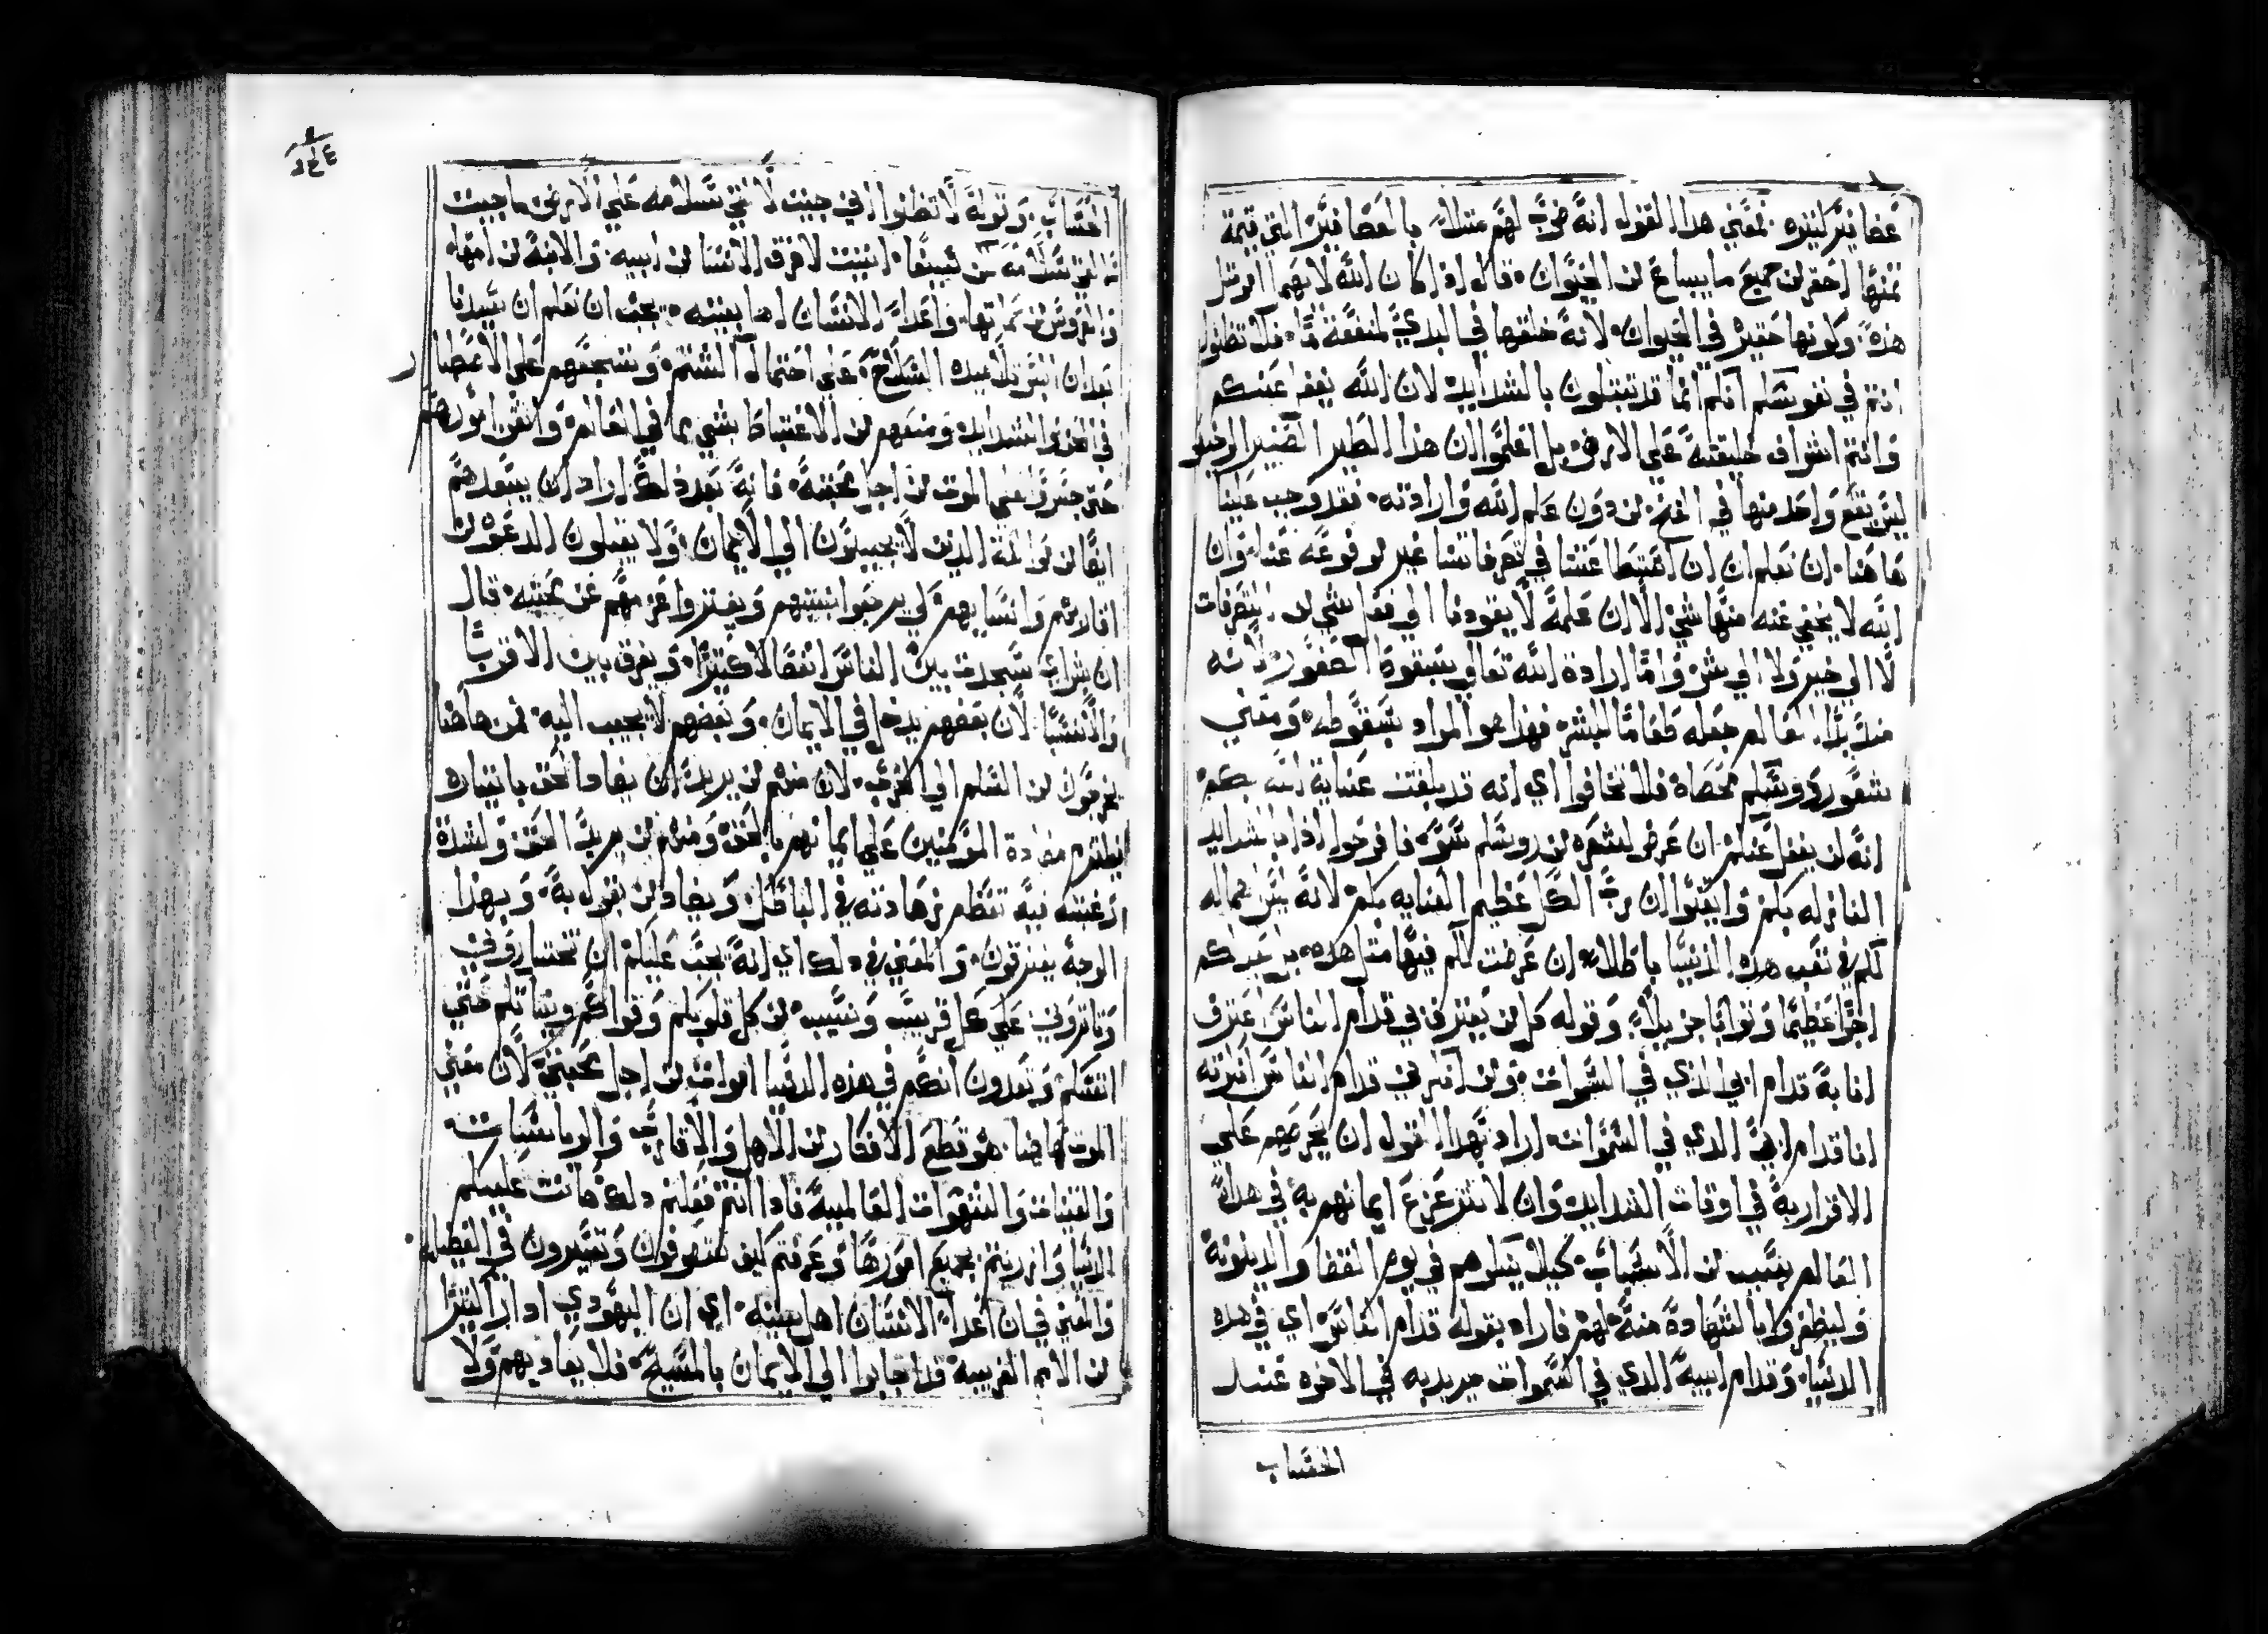 عصافير كثيره. فمعني هدا القول انه ضرب لهم مثلاً بالعصافير التي قيمة
ثمنها احقر من جميع ما يباع من الحيوان. قال اذا كان الله لا يهمل امر مثل
هذه. وكونها حقيره في الحيوان. لانه خلقها في البدي لمنفعة ما. فلا تظنوا
انتم في نفوسكم انكم انما قد تبتلون بالشدايد لان الله يغفل عنكم
وانتم اشراف خليقته علي الارض بل اعلموا ان هذا الطير الصغير الحقير
ليس يقع واحد منها في الفخ من دون علم الله وارادته. فقد وجب علينا
هاهنا. ان نعلم ان اغتباطاتنا في تصرفاتنا غير مرفوعه عنا. وان
الله لا يخفي عنه منها شي الا ان علمه لا يقودنا الي فعل شي من التصرفات
لا الي خير ولا الي شر. واما ارادة الله تعالي بسقوط العصفور. لانه
منذ بدا العالم جعله طعاما للبشر. فهذا هو المراد بسقوطه. ومعني
شعور روسكم محصاه فلا تخافوا اي انه قد بلغت عناية الله بكم
انه لن يغفل عنكم ان عرض لشعره من روسكم سو. فافرحوا اذا بالشدايد
النازله بكم وايقنوا ان رب الكل عظيم العنايه بكم. لانه ليس اهماله
لكم في تعب هده الدنيا باطلاً ان عرضت لكم فيها مثل هده. بل يعد لكم
اجراً عظيما وثوابا جزيلاً. وقوله كل من يعترف بي قدام الناس اعترف
انا به قدام ابي الذي في السموات. ومن انكرني قدام الناس انكرته
انا قدام ابي الدي في السموات اراد بهدا القول ان يحرضهم علي
الاقرار به في اوقات الشدايد وان لا تتزعزع ايمانهم به في هدا
العالم بسبب من الاسباب. كيلا يبكوهم في يوم القضا والدينونة
وليظفروا بالشهادة منه لهم فاراد بقوله قدام الناس اي في هده
الدنيا. وقدام ابيه الدي في السموات يريد به في الاخره عند
الحساب
الحساب. وقوله لا تظنوا اني جيت لالقي سلامه علي الارض ما جيت
لالقي سلامه لكن سيفا. اتيت لافرق الانسان من ابيه. والابنة من امها.
والعروس من حماتها. واعدا الانسان اهل بيته. يجب ان نعلم ان سيدنا
بعد ان البس تلاميده السلاح. علي احتمال الشتم. وشجعهم علي الاصطبار
في الحزن والشدايد ومنعهم من الاغتباط بشي مما في العالم. واتقن امورهم
حتي جسروا علي الموت من اجل محبته. فانه بعد ذلك اراد ان يبعدهم
ايضا من موالفة الذين لا يجيبون الي الايمان. ولا يقبلون الدعوه من
اقاربهم وانسابهم. لي يرفضوا بنيتهم ويفتروا عزمهم عن محبته. قال
ان بشراي ستحدث بين الناس انفصالا كثيرا. ويفرق بين الاقربا
والانسبا. لان بعضهم يدخل في الايمان. وبعضهم لا يجيب اليه. فمن هاهنا
يخرجون من السلم الي الحرب. لان منهم من يريد ان يضاد الحق باتيانه
مضادة المومنين علي ايمانهم بالحق ومنهم من يريد الحق ولشدة
رغبته فيه تعظم زهادته في الباطل. ويضاد من يقول به. وبهدا
الوجه يفترقون. والمعني في دلك اي انه يجب عليكم ان تختاروني
وتاثروني علي كل قريب ونسيب من كل قلوبكم وقواكم ونياتكم حتي
انفسكم وتعدون انكم في هذه الدنيا اموات من اجل محبتي. لان معني
الموت هاهنا. هو قطع الافكار من الاهل والاقارب والرياسات
والقنيات والشهوات العالمية فادا انتم فعلتم دلك هانت عليكم
الدنيا وازريتم بجميع امورها وعرفتم كيف تتصرفون وتسيرون في الفضايل.
والمعني في ان اعدا الانسان اهل بيته. اي ان اليهودي ادا راي كثيرا
من الامم الغريبه قد اجابوا الي الايمان بالمسيح. فلا يعاديهم ولا